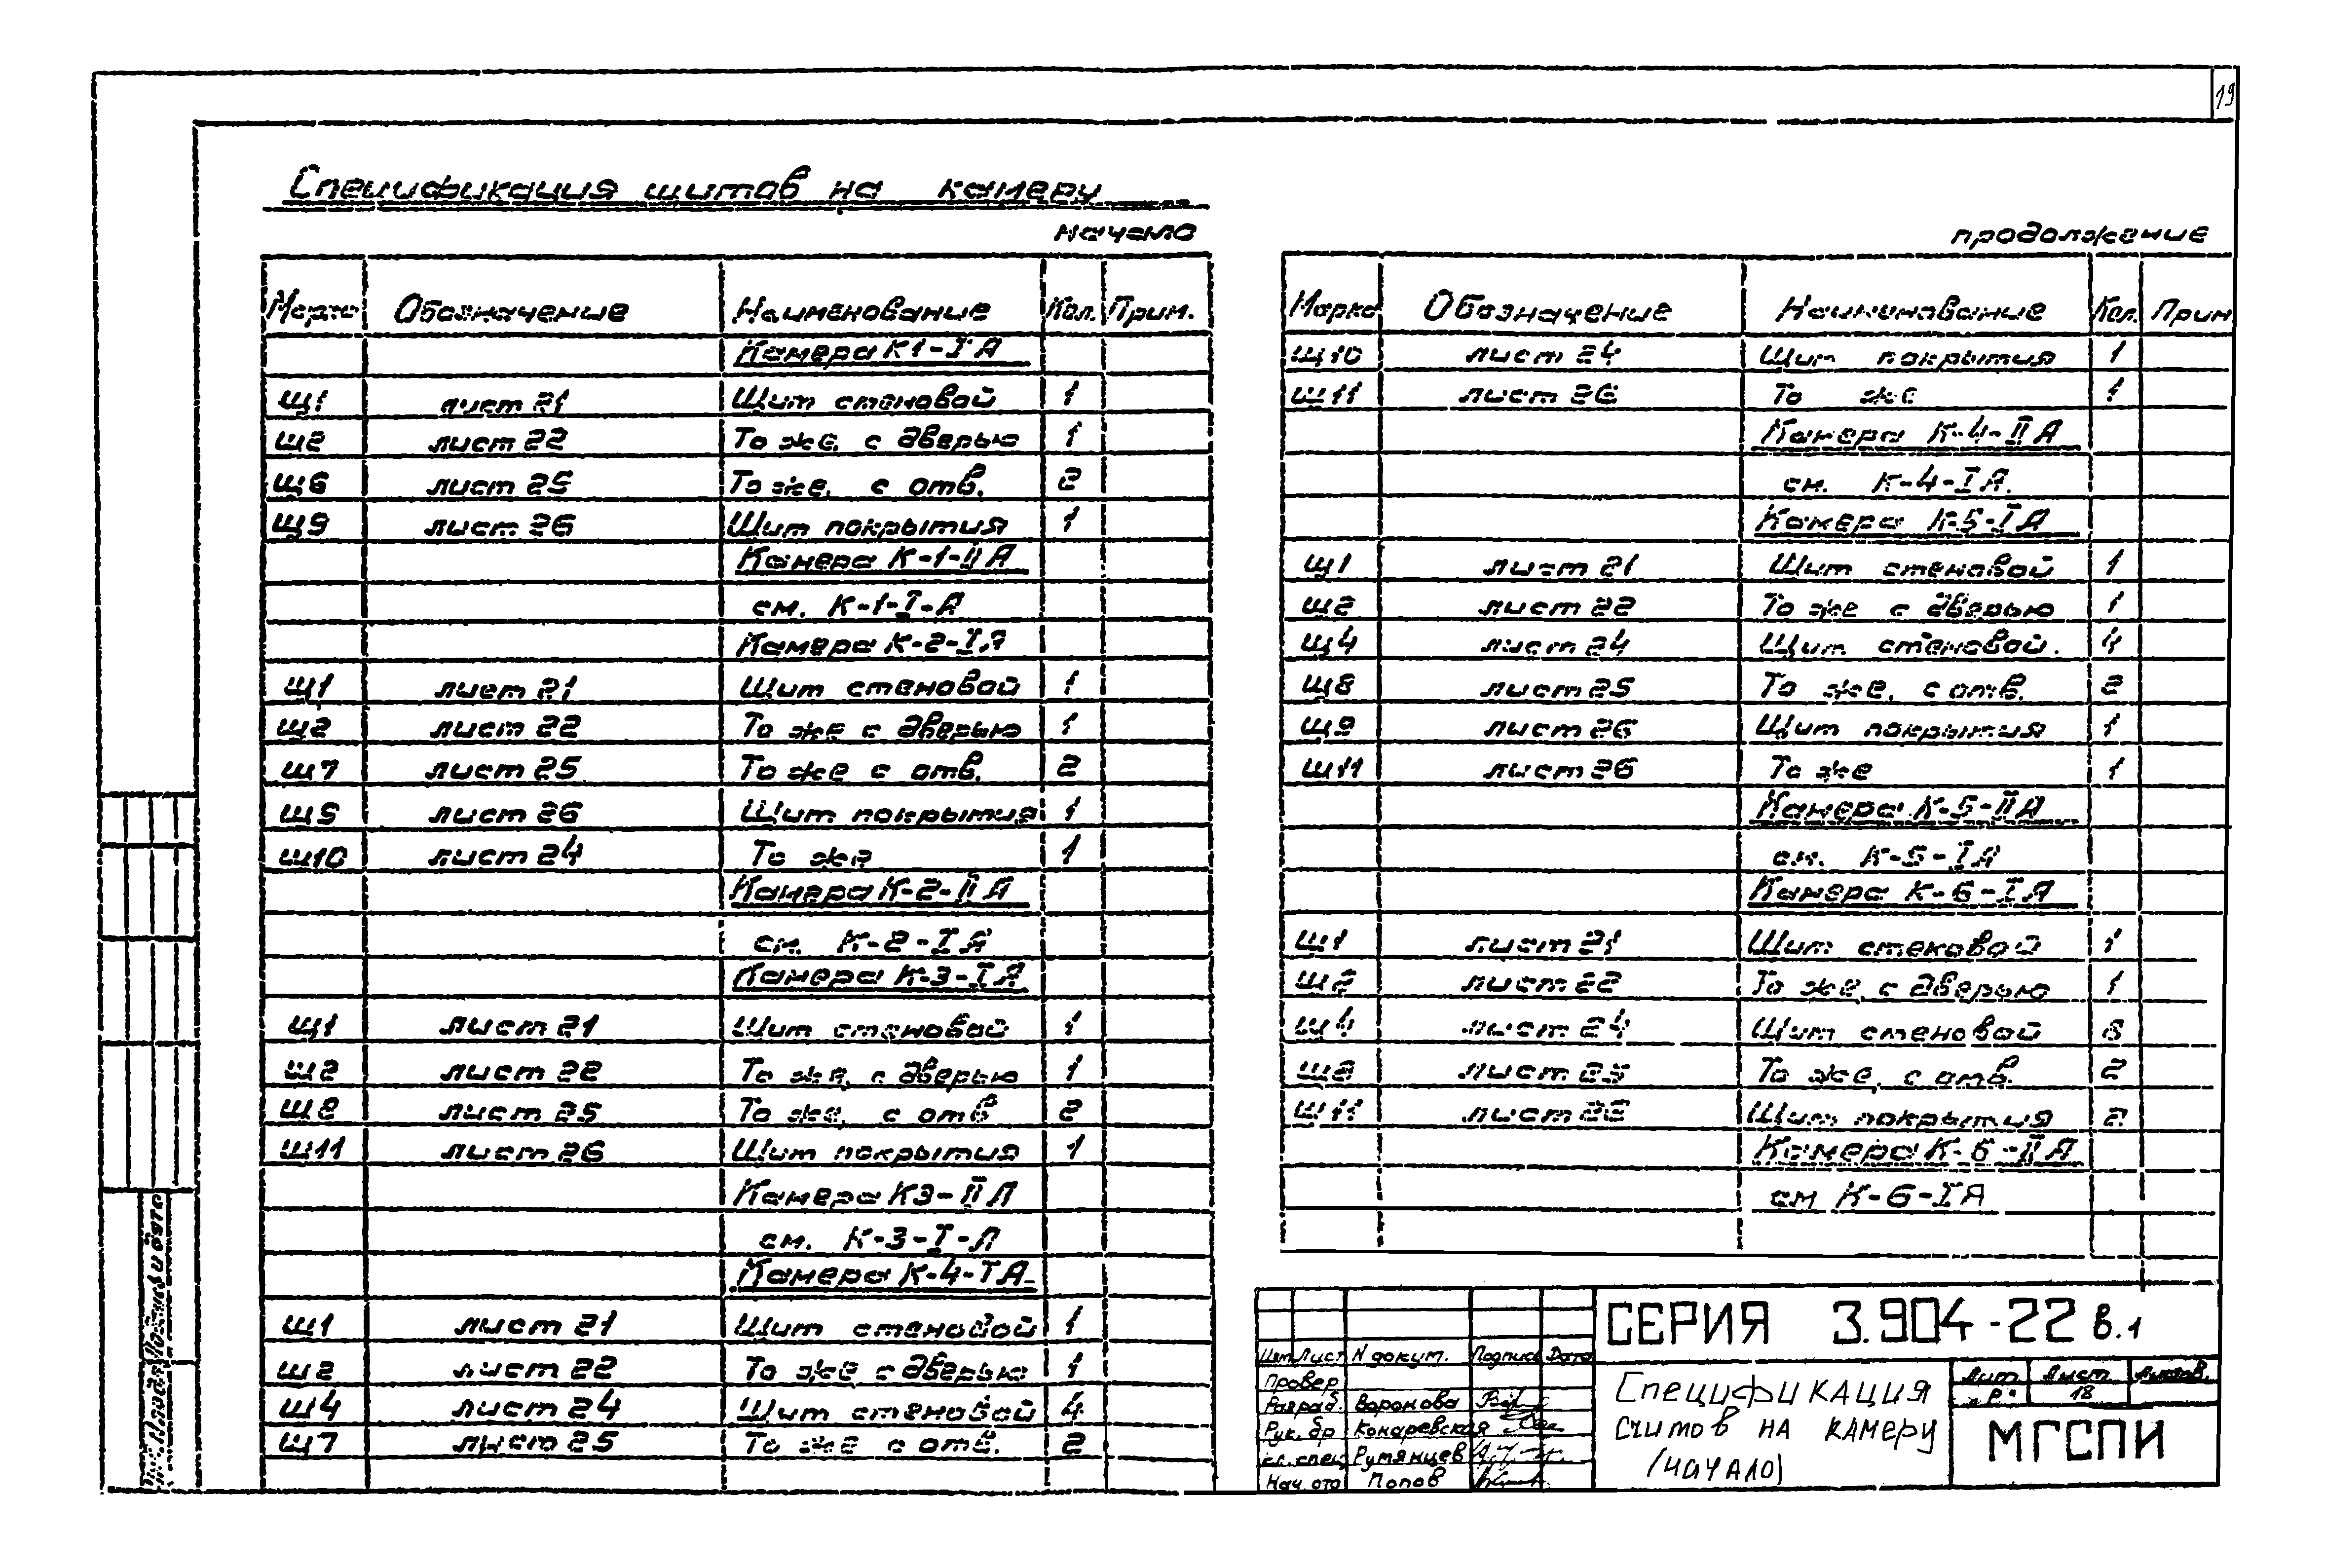 19
Спецификация щитов на камеру
начало
Марка Обозначение Наименование Кол. Прим.
Камера К1-IА
Щ1 лист 21 Щит стеновой 1
Щ2 лист 22 То же, с дверью 1
Щ6 лист 25 То же, с отв. 2
Щ9 лист 26 Щит покрытия 1
Камера К-1-IIА
см. К-1-I-А
Камера К-2-IА
Щ1 лист 21 Щит стеновой 1
Щ2 лист 22 То же с дверью 1
Щ7 лист 25 То же с отв. 2
лист 26 Щит покрытия 1
Щ10 лист 24 То же 1
Камера К-2-IIА
см. К-2-IА
Камера К-3-IА
Щ1 лист 21 Щит стеновой 1
Щ2 лист 22 То же, с дверью 1
Щ8 лист 25 То же, с отв 2
Щ11 лист 26 Щит покрытия 1
Камера К3-IIА
см. К-3-I-А
Камера К-4-IА
Щ1 лист 21 Щит стеновой 1
Щ2 лист 22 То же с дверью 1
Щ4 лист 24 Щит стеновой 4
Щ7 лист 25 То же с отв. 2
продолжение
Марка Обозначение Наименование Кол. Прим
Щ10 лист 24 Щит покрытия 1
Щ11 лист 26 То же 1
Камера К-4-IIА
см. К-4-IА.
Камера К-5-IА
Щ1 лист 21 Щит стеновой 1
Щ2 лист 22 То же с дверью 1
Щ4 лист 24 Щит стеновой. 4
Щ8 лист 25 То же, с отв. 2
Щ9 лист 26 Щит покрытия 1
Щ11 лист 26 То же 1
Камера К-5-IIА
см. К-5-IА
Камера К-6-IА
Щ1 лист 21 Щит стеновой 1
Щ2 лист 22 То же, с дверью 1
Щ4 лист 24 Щит стеновой
Щ8 лист 25 То же, с отв. 2
Щ11 лист 26 Щит покрытия 2
Камера К-6-IIА
см К-6-IА
СЕРИЯ 3.904-22 в.1
Изм Лист N докум. Подпись Дата
Провер
Разраб. Воронова
Рук. бр Конаревская
Гл. спец Румянцев
Нач. отд Попов
Спецификация
щитов на камеру
(начало)
Лит. Лист Листов.
"Р" 18
МГСПИ